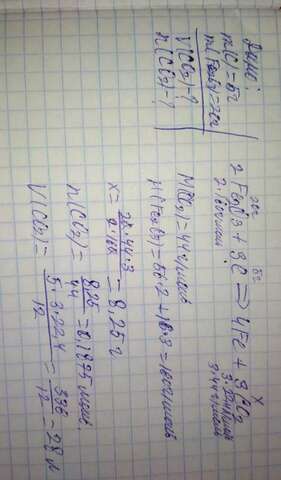 Дано:
m(C)=5г
m(Fe2O3)=20г
V(CO2)-?
n(CO2)-?
20г 5г x
2Fe2O3 + 3C => 4Fe + 3CO2
3·44г/моль
M(CO2)=44г/моль
M(Fe2O3)=56·2+16·3=160г/моль
x= 20·44·3 / 2·160 = 8,25г
n(CO2)= 8,25 / 44 =0,1875моль.
V(CO2)= 5·3·22,4 / 12 = 336 / 12 =28 л